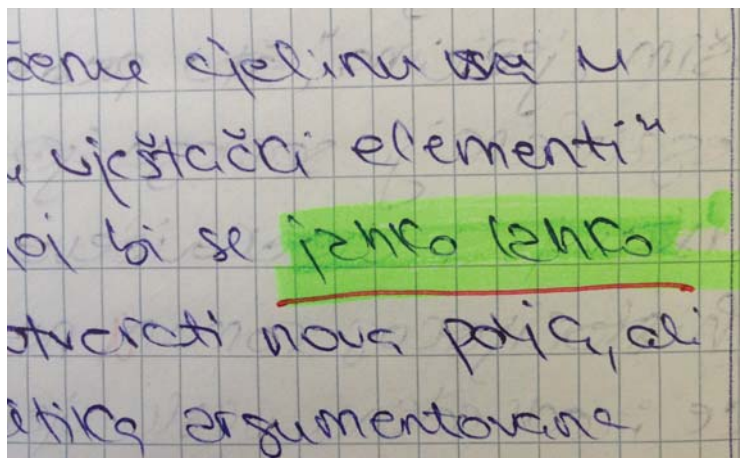 čenu cjelinu sa u
„ vještački elementi“
oj bi se
otvarati nova polja, ali
etika argumentovana